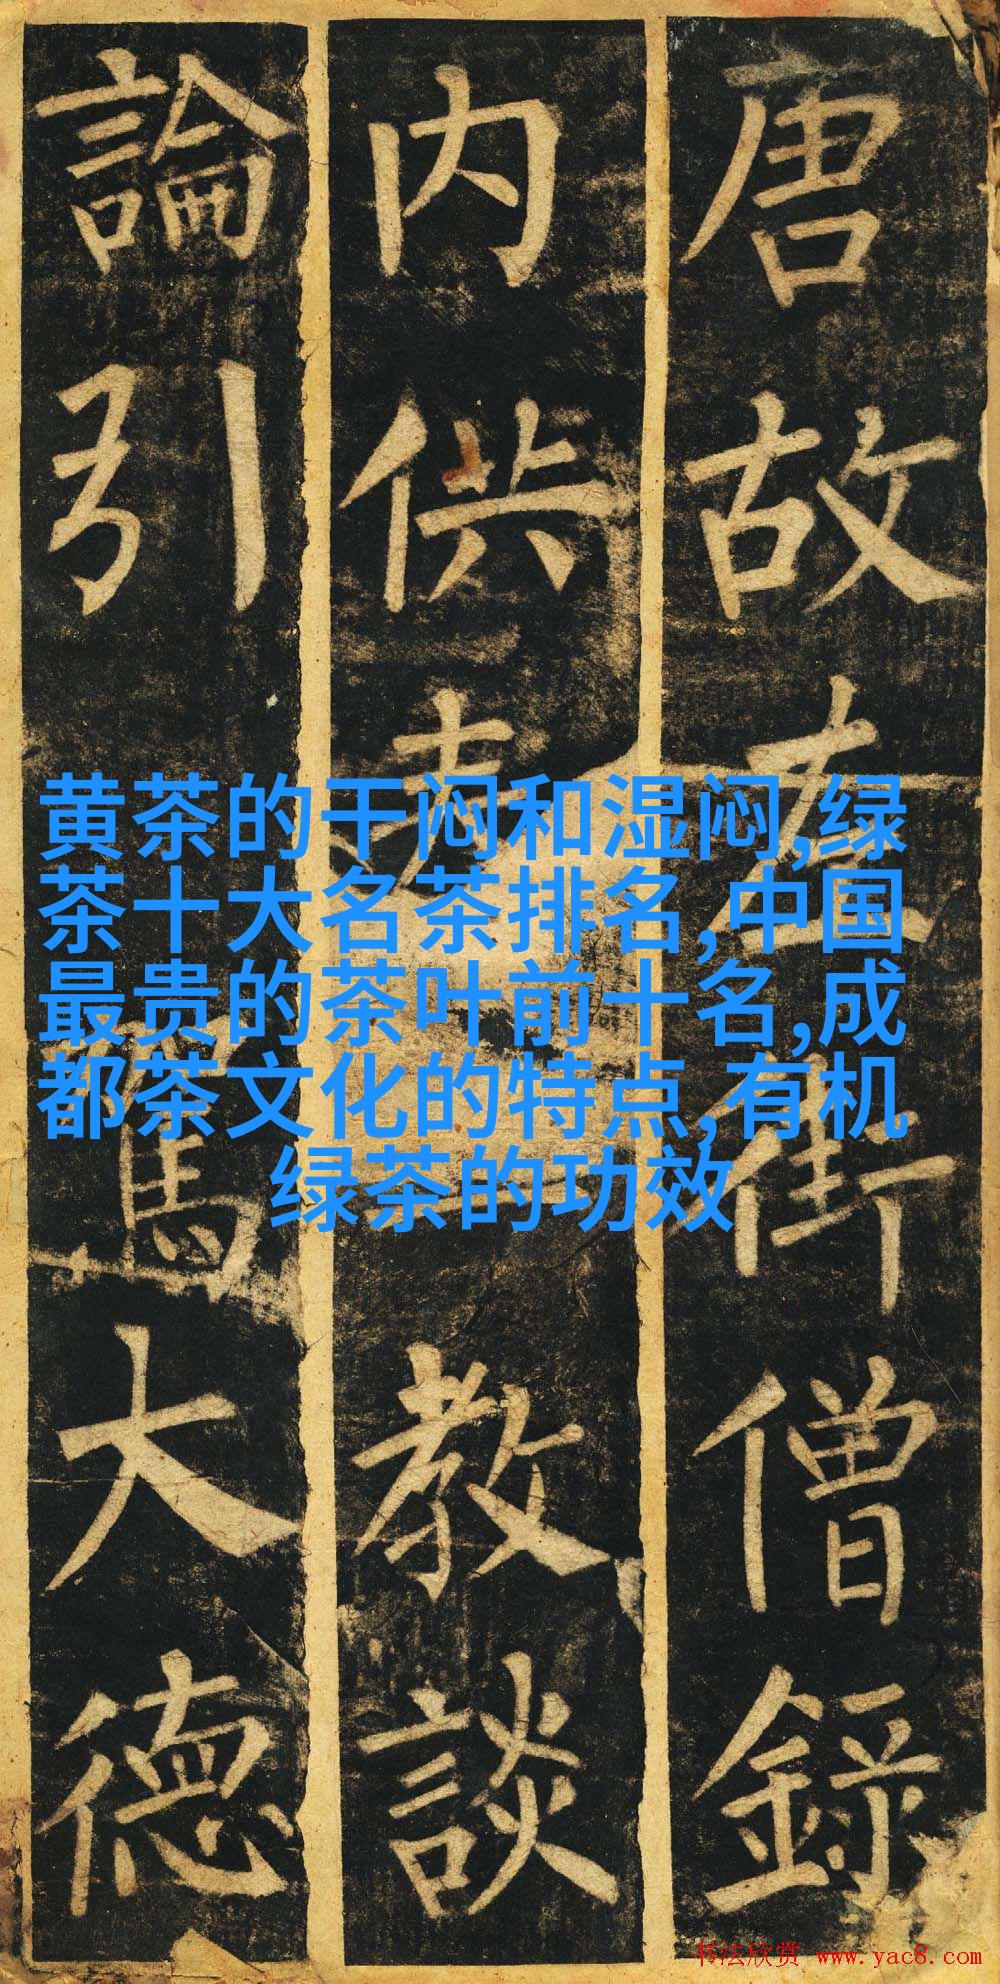 唐故左街僧錄
内供奉教談
論引駕大德
黄茶的干闷和湿闷,绿
茶十大名茶排名,中国
最贵的茶叶前十名,成
都茶文化的特点,有机
绿茶的功效
书法欣赏 www.yac8.com